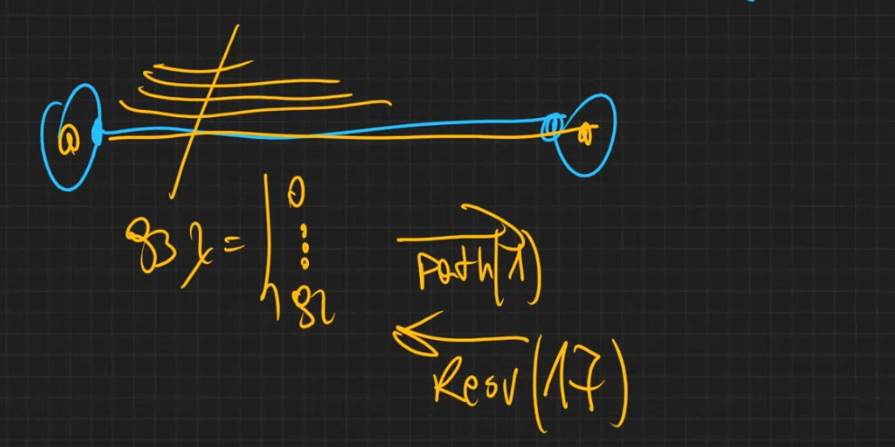 83 λ =
0
⋮
82
Path(λ)
Resv(17)